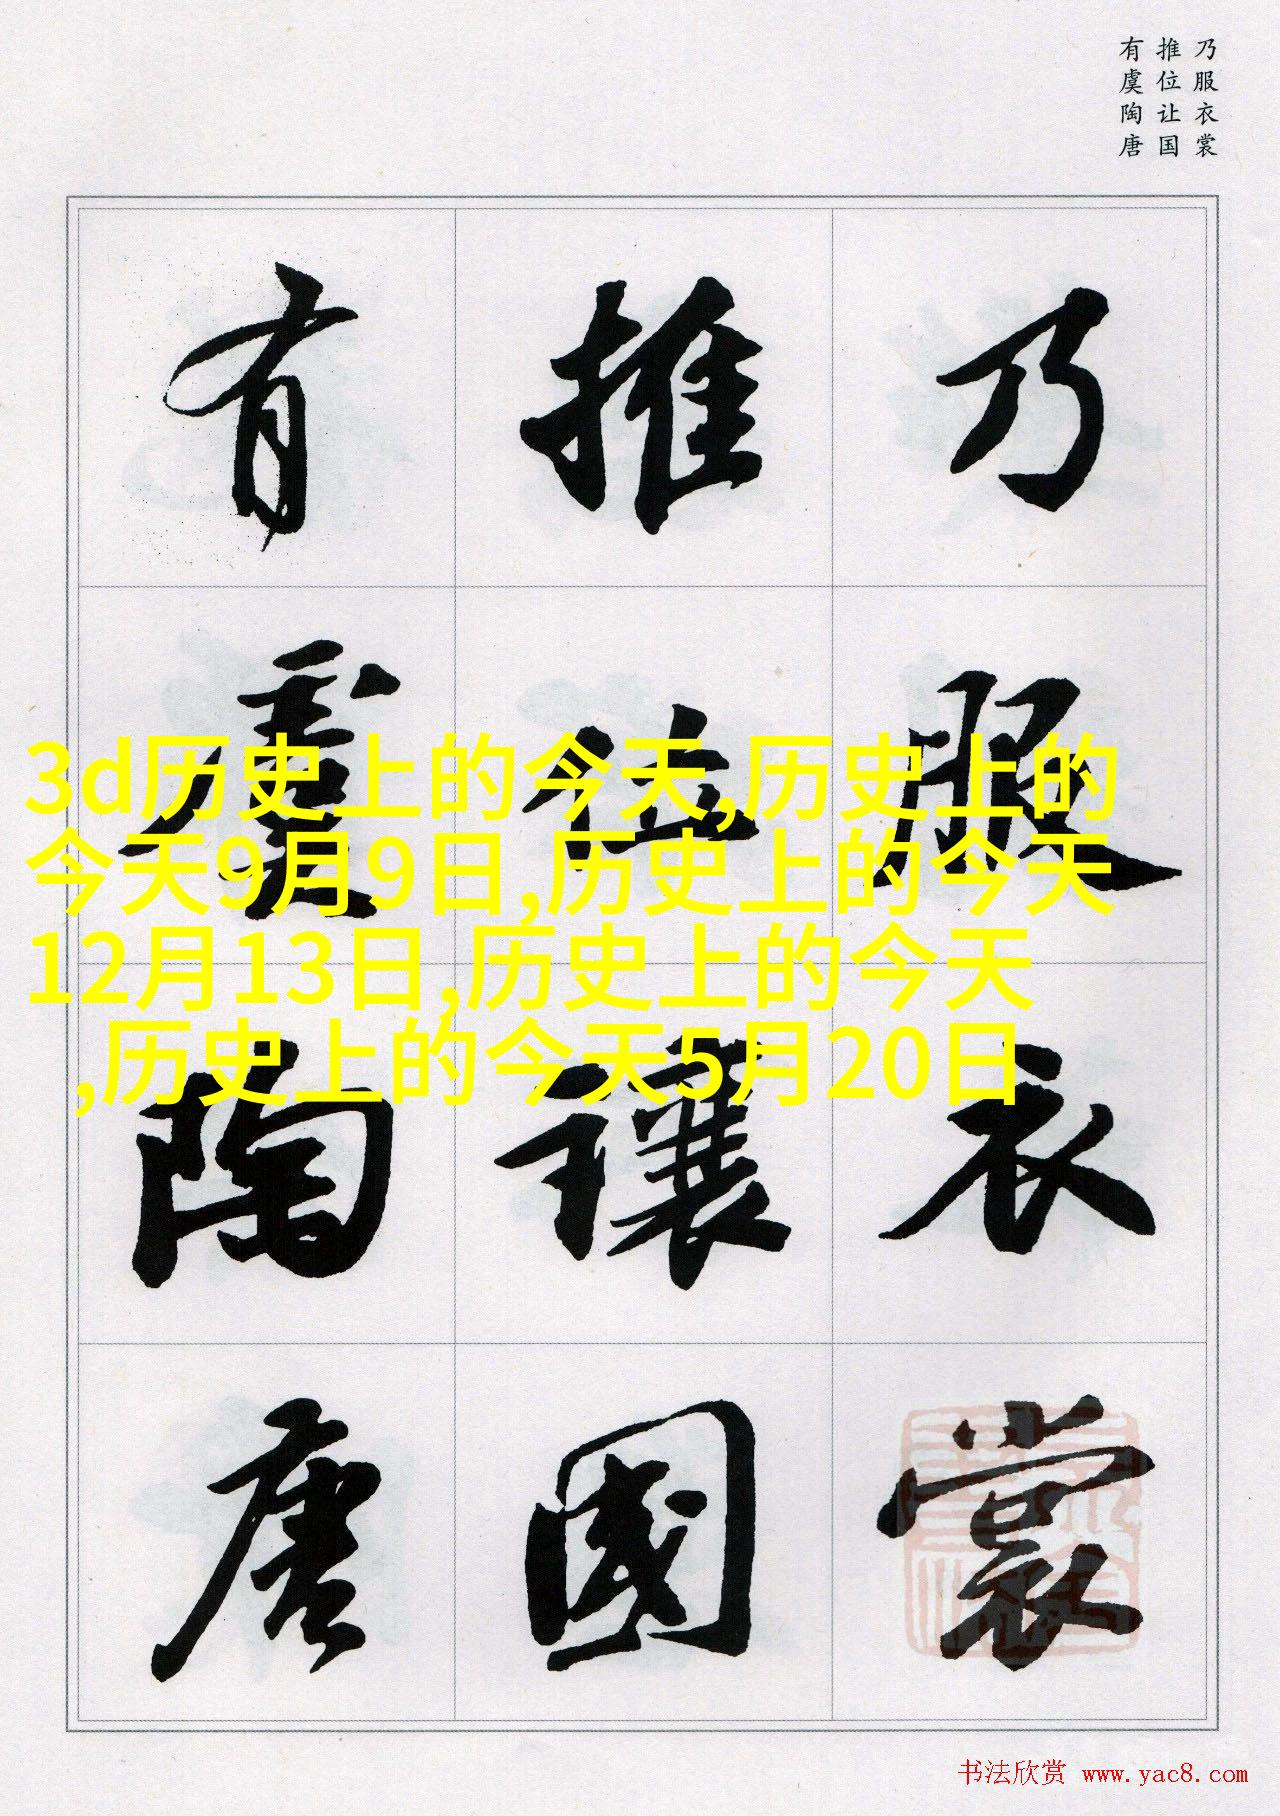 乃服衣裳
推位让国
有虞陶唐
乃服衣裳
推位讓國
有虞陶唐
3d历史上的今天,历史上的
今天9月9日,历史上的今天
12月13日,历史上的今天
,历史上的今天5月20日
书法欣赏 www.yac8.com